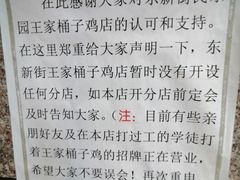 在此感谢大家对东新街民乐
园王家桶子鸡店的认可和支持。
在这里郑重给大家声明一下，东
新街王家桶子鸡店暂时没有开设
任何分店，如本店开分店前定会
及时告知大家。（注：目前有些亲
朋好友及在本店打过工的学徒打
着王家桶子鸡的招牌正在营业，
希望大家不要误会！再次重申